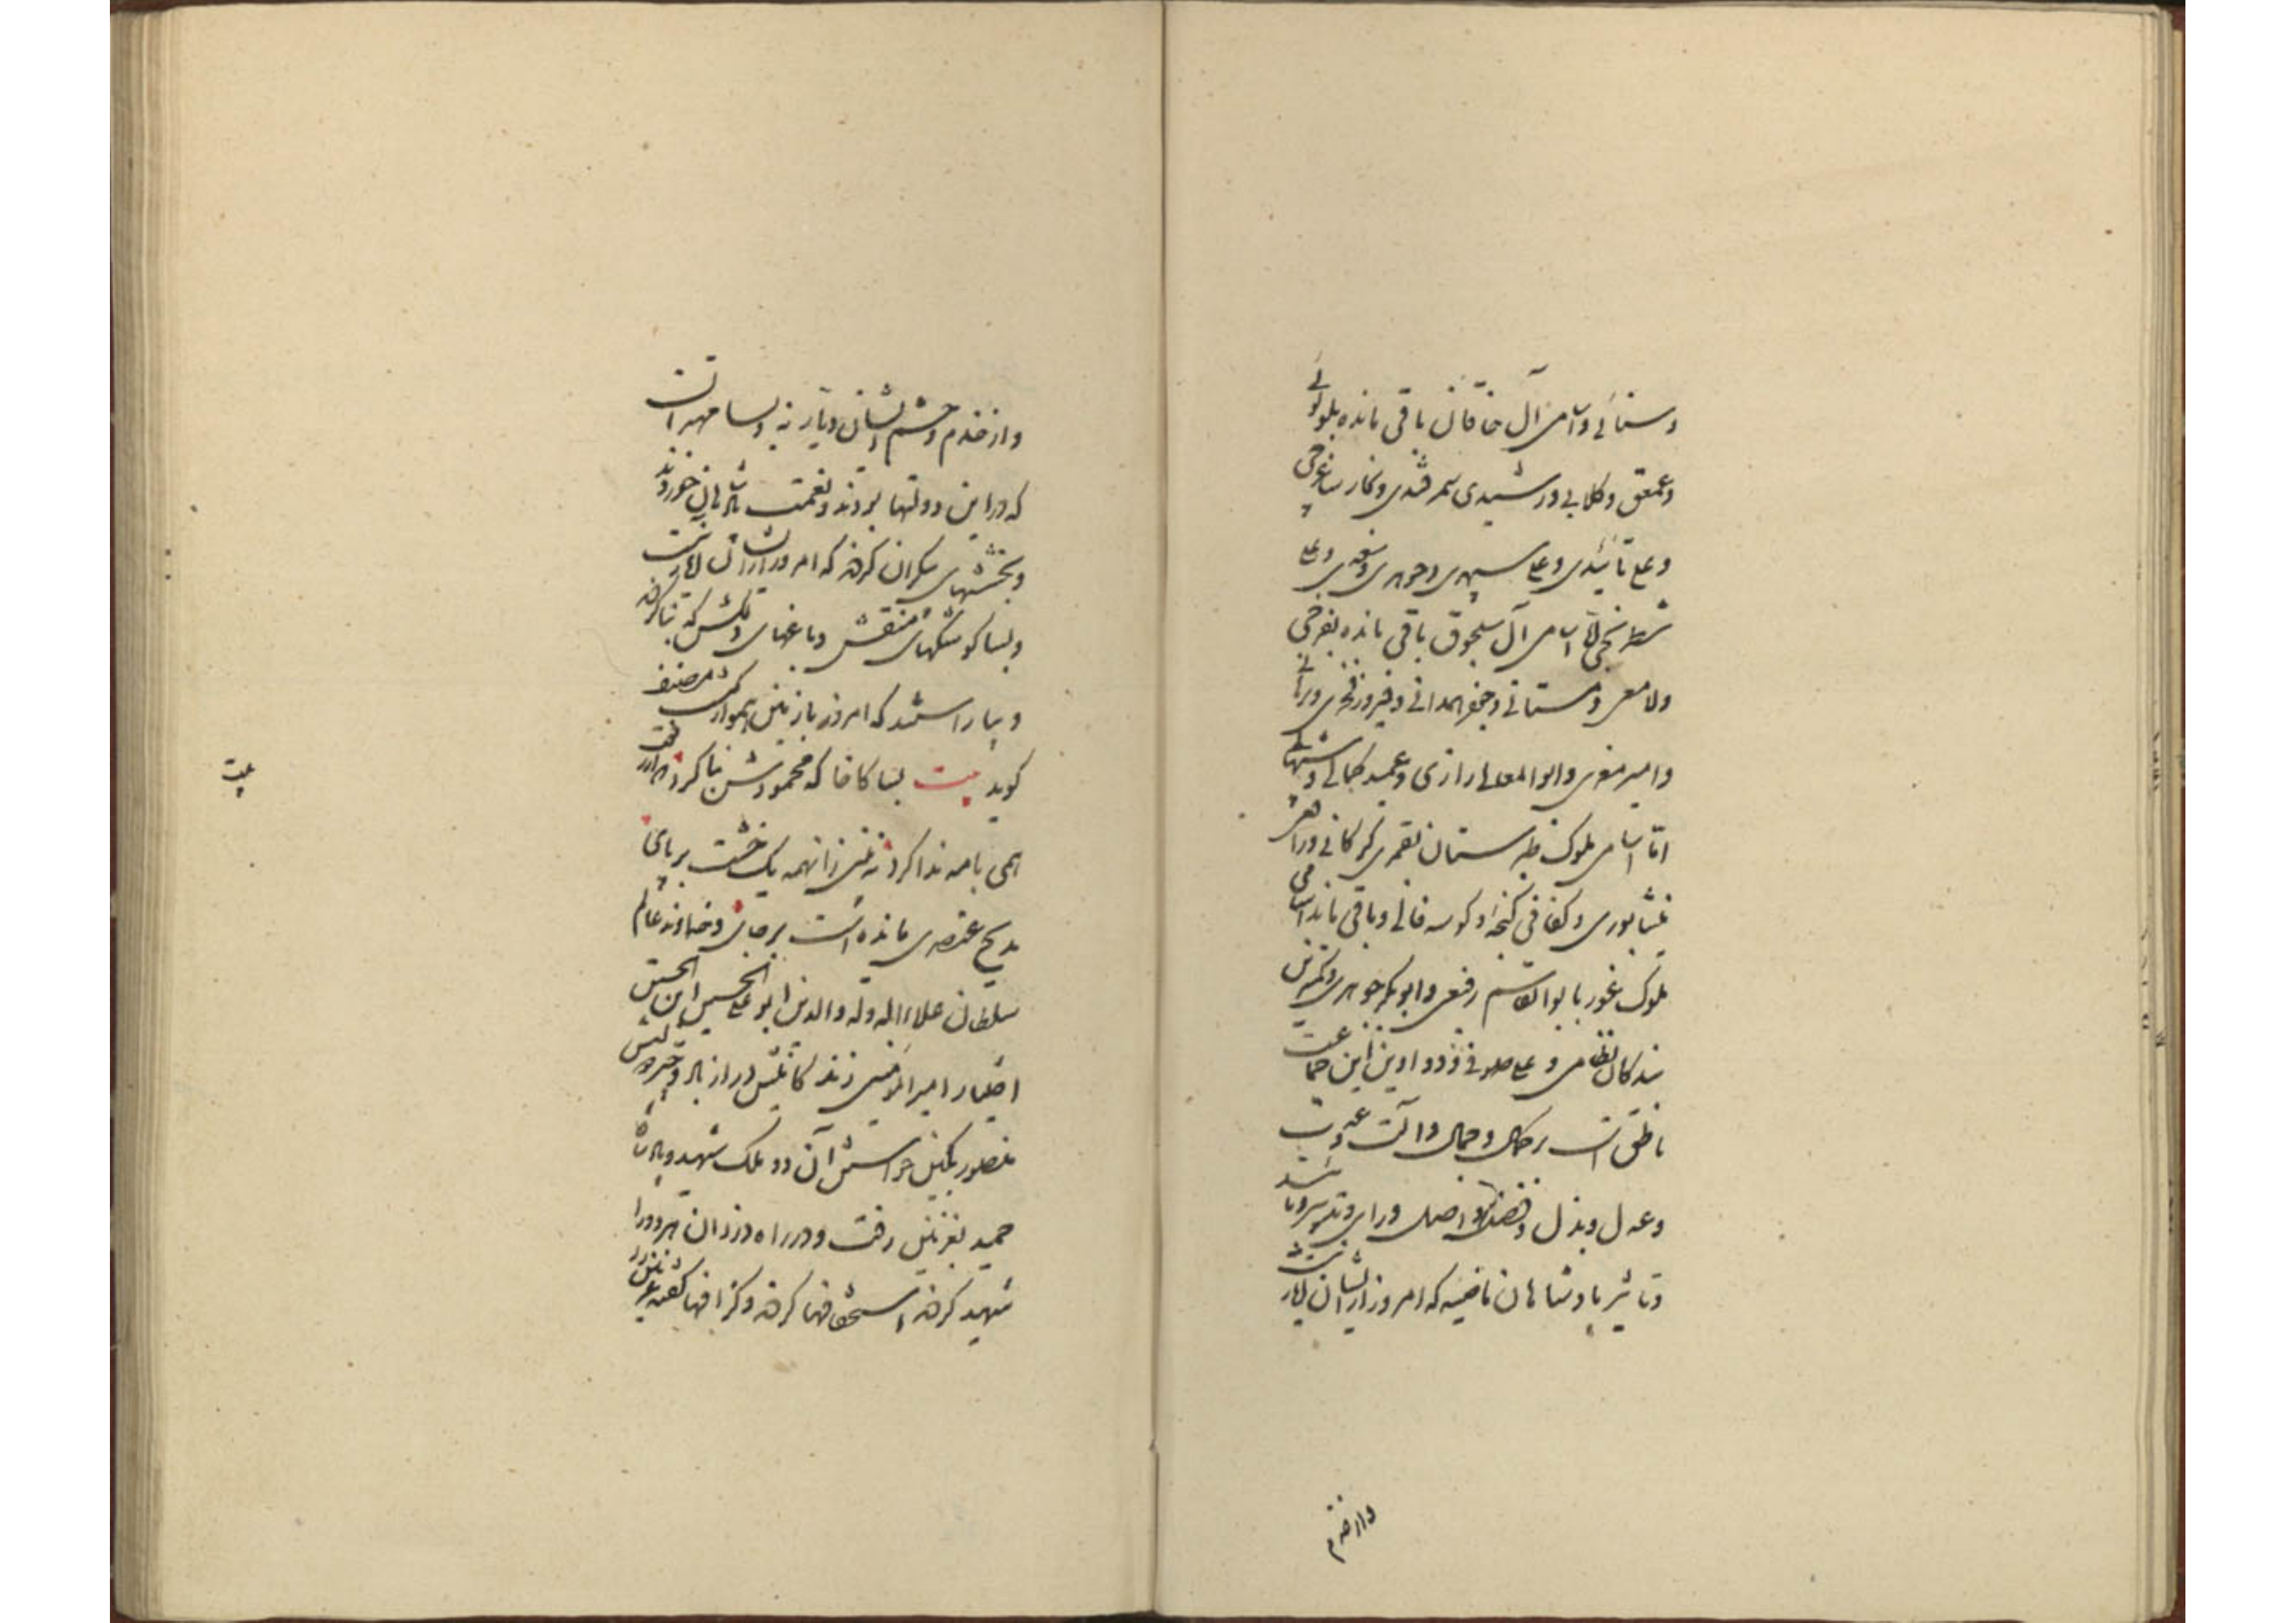 وسنائی و اسامی آل خاقان باقی مانده بلولوئی
وعمعق وکلابی ورشیدی سمرقندی ونجار ساغرجی
وعلی تائیدی وعلی سپهری وجوهری وسغدی وعلی
شطرنجی اما اسامی آل سلجوق باقی مانده بفرخی
ولامعی دهستانی وجعفر همدانی وفیروز فخری وبرهانی
وامیر معزی وابوالمعالی رازی وعمید کمالی وشهابی
اما اسامی ملوک طبرستان بقمری گرگانی ورافعی
نیشابوری وکفائی گنجه وکوسه فالی وباقی ماند اسامی
ملوک غور بابوالقاسم رفیعی وابوبکر جوهری وکمترین
بندگان نظامی وعلی صوفی ودواوین این جماعت
ناطق است بر کمال وجمال وآلت وعدت
وعدل وبذل وفضل واصل ورای وتدبیر وتائید
وتاثیر پادشاهان ماضیه که امروز از ایشان آثار نیست
واز خدم
واز خدم وحشم ایشان دیار نه وبسا مهتران است
که در این دولتها بودند ونعمت پادشاهان خوردند
وبخششهای بیکران کردند که امروز از ایشان آثار نیست
وبسا کوشکهای منقش وباغهای دلکش که بنا کردند
وبیاراستند که امروز با زمین هموار است مصنف
گوید بیت بسا کاخا که محمودش بنا کرد که از رفعت
همی با مه ندا کرد نه بینی زانهمه یک خشت بر پای
مدیح عنصری مانده است بر جای وخداوند عالم
سلطان علاءالدوله والدین ابوعلی الحسین ابن الحسین
اختیار امیرالمؤمنین زندگانیش دراز باد وچتر دولتش
منصور بکین خواستن آن دو ملک شهید وپادشاه
حمید بغزنین رفت ودر راه دزدان هر دو را
شهید کردند استخفافها کردند وگزافها گفتند غزنین را
بیت